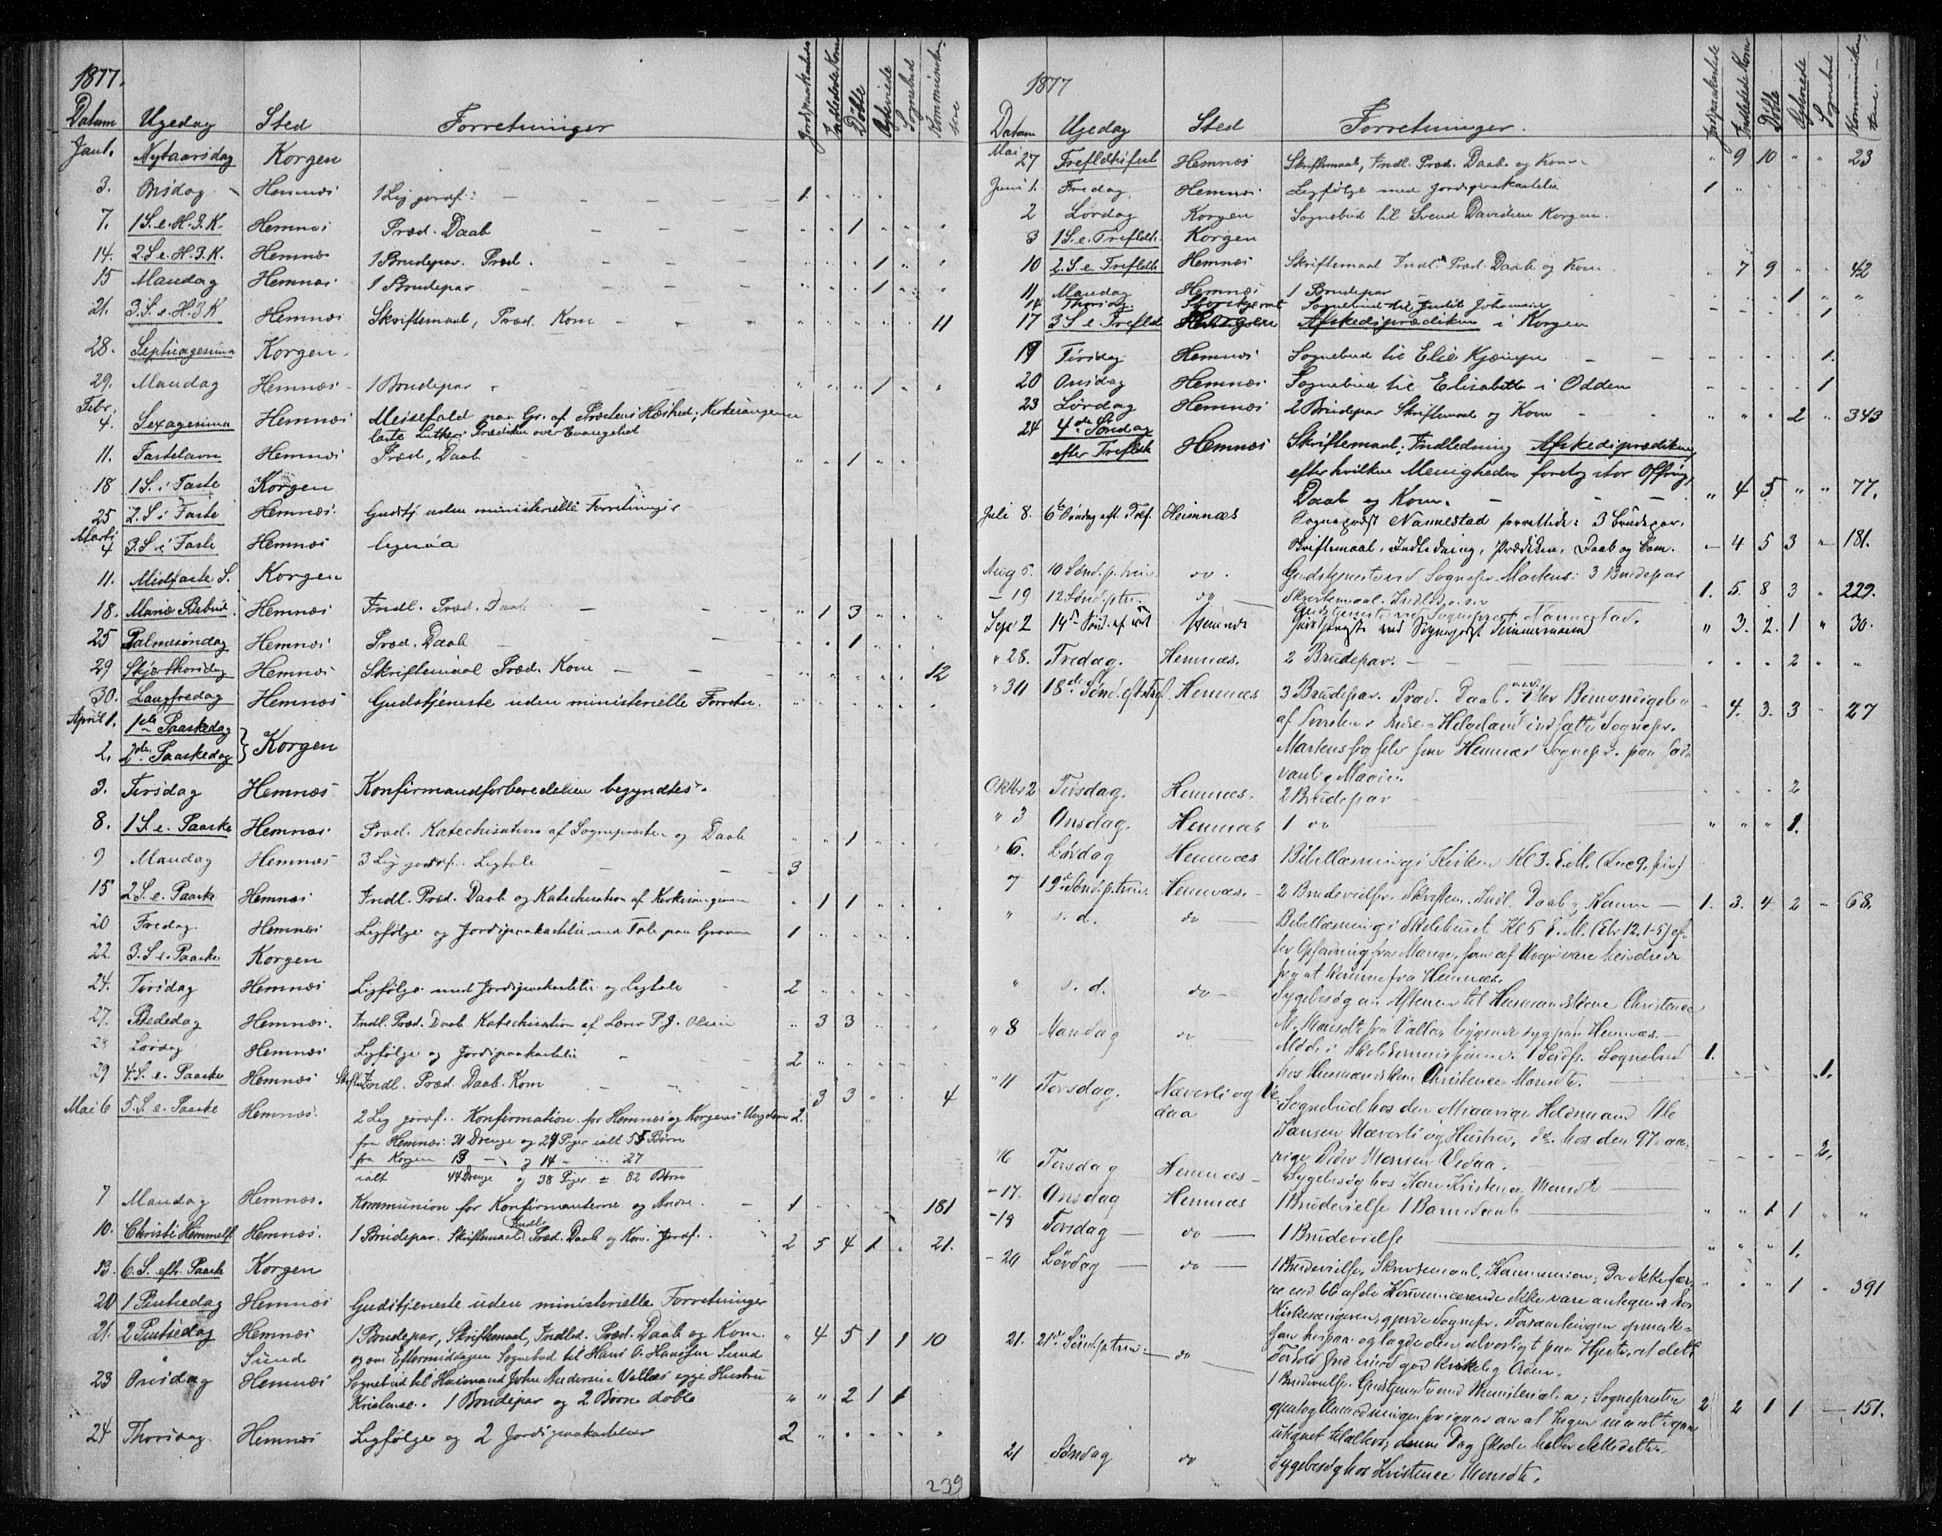 1877.
Datum Ugedag Sted Forretninger Jordpaakastede Indledede Kon. Døbte Egteviede Sognebud Kommunikan
Jan 1. Nytaarsdag Korgen
3. Onsdag Hemnæs 1 Lig jordf. 1
7. 1 S. e. H. 3. K. Hemnæs Præd. Daab 1
14. 2 S. e. H. 3. K. Hemnæs 1 Brudepar. Præd. 1
15 Mandag Hemnæs 1 Brudepar 1
21. 3. S. e. H. 3. K Hemnæs Skriftemaal, Præd. Kom 11
28. Septuagesima Korgen.
29. Mandag Hemnæs 1 Brudepar 1
Febr. 4. Sexagesima Hemnæs Messefald paa Gr. af Præstens Hæshed; Kirkesangeren
læste Luthers Prædiken over Evangeliet
11. Fastelavn Hemnæs Præd, Daab 1
18 1 S. i Faste Korgen
25 2. S. i Faste Hemnæs. Gudstj uden ministerielle Forretninger
Marts 4 3. S. i Faste Hemnæs ligesaa
11. Midfaste S. Korgen
18. Mariæ Bebud. Hemnæs Indl. Præd. Daab 1 3
25 Palmesøndag Hemnæs Præd. Daab 1
29 Skjærthorsdag Hemnæs Skriftemaal Præd. Kom 12
30. Langfredag Hemnæs Gudstjeneste uden ministerielle Forretn.
April 1. 1ste Paaskedag
2. 2den Paaskedag } Korgen
3. Tirsdag Hemnæs Konfirmandforberedelsen begyndtes.
8. 1 S. e. Paaske Hemnæs Præd. Katechisation af Sognepræsten og Daab 1
9 Mandag Hemnæs 3 Lig jordf. Ligtale 3
15 2 S. e. Paaske Hemnæs Indl. Præd. Daab og Katechisation af Kirkesangeren 1 1
20 Fredag. Hemnæs Ligfølge og Jordspaakastelse med Tale paa Graven 1
22. 3. S. e. Paaske Korgen
24. Tirsdag Hemnæs Ligfølge med Jordspaakastelse og Ligtale 2
27. Bededag Hemnæs. Indl. Præd. Daab Katechisation af Lærer P. J. Olsen 3 3
28 Lørdag Hemnæs Ligfølge og Jordspaakastelse 2
29 4. S. e. Paaske Hemnæs Skriftm Indl. Præd. Daab. Kom 3 3 4
Mai 6 5. S. e. Paaske Hemnæs. 2 Lig jordf. Konfirmation for Hemnæs og Korgens Ungdom 2.
fra Hemnæs: 31 Drenge og 24 Piger ialt 55 Børn
fra Korgen 13 — og 14 — ... 27
ialt 44 Drenge og 38 Piger = 82 Børn
7 Mandag Hemnæs. Kommunion for Konfirmanterne og Andre. 1 181
10. Christi Himmelf. Hemnæs. 1 Brudepar. Skriftemaal. Indl. Præd. Daab og Kom. Jordf. 2 5 4 1 21.
13. 6. S. eft. Paaske Korgen
20 1 Pintsedag Hemnæs Gudstjeneste uden ministerielle Forretninger
21. 2 Pintsedag Hemnæs 1 Brudepar, Skriftemaal, Indled. Præd. Daab og Kom. " 4 5 1 1 10
Sund og om Eftermiddagen Sognebud til Hans O. Hanssen Sund
23 Onsdag Hemnæs Sognebud til Husmand John Andersen Vallas syge Hustru
Kristense. 1 Brudepar og 2 Børn døbte " " 2 1 1
24 Thorsdag. Hemnæs Ligfølge og 2 Jordspaakastelser 2
239
1877
Datum Ugedag Sted Forretninger. Jordpaakastede Indledede Kon Døbte Egteviede Sognebud Kommunikan
Mai 27 Treflthsfest Hemnæs Skriftemaal, Indl. Præd. Daab og Kom " 9 10 " " 23
Juni 1. Fredag. Hemnæs Ligfølge med Jordspaakastelse 1
2 Lørdag Korgen Sognebud til Svend Davidsen Korgen.
3 1 S. e. Trefldt. Korgen
10 2. S. e. Trefldt Hemnæs Skriftemaal Indl. Præd. Daab og Kom 7 9 42
11 Mandag Hemnæs 1 Brudepar 1
14 Thorsdag. Sognebud til Judit Johansen 1
17 3 S. e. Trefldt Korgen Afskedsprædiken i Korgen
19 Tirsdag Hemnæs Sognebud til Elie Kjæmpen 1.
20 Onsdag Hemnæs Sognebud til Elisabeth i Odden 1
23 Lørdag Hemnæs 2 Brudepar Skriftemaal og Kom 2 343
24 4de Søndag
efter Trefldt Hemnæs Skriftemaal, Indledning Afskedsprædiken
efter hvilken Menigheden foretog stor Offring,
Daab og Kom. " 4 5 " " 77.
Juli 8. 6te Søndag eft. Tref. Hemnæs Sognepræst Nannestad forrettede: 3 Brudepar.
Skriftemaal, Indledning, Prædiken, Daab og Com. — 4 5 3 181.
Aug 5. 10 Sønd. p. trin. do. Gudstjeneste ved Sognepr. Martens: 3 Brudepar
Skriftemaal. Indledn. 1. 5. 8 3 229.
— 19 12 Sønd p trin. do Gudstjeneste ved Sognepræst Nannestad.
Sept 2 14de Sønd. ef tref Hemnæs Gudstjeneste ved Sognepræst Zimmermann " 3. 2. 1 " 30.
" 28. Fredag. Hemnæs. 2 Brudepar. 2
" 30 18de Sønd. eft. Tref Hemnæs 3 Brudepar. Præd. Daab. Efter Bemyndigelse 4. 3. 3 27
af Provsten i Indre-Helgeland indsatte Sognepr.
Martens sig selv som Hemnæs Sognepr.
Oktbr 2 Tirsdag. Hemnæs. 2 Brudepar 2
" 3 Onsdag. Hemnæs 1 do " " " 1.
" 6. Lørdag Hemnæs Bibellæsning i Kirken Kl 3. E.M. (Luc 9. fin)
7 19de Sønd. p. trin. Hemnæs. 2 Brudevielser. Skriftem. Indl. Daab Komm 1. 3. 4 2 68.
" s. d. do Bibellæsning i Skolehuset Kl 5 E.M. (Ebr 12. 1-5) ef-
ter Opfordring fra Mange, som af Veir vare hindrede
fra at komme fra Hemnæs.
" s. d. do Sygebesøg om Aftenen til Husmandskone Christence
M. Monsdt. fra Vallas, liggende syg paa Hemnæs.
" 8 Mandag do Møde i Skolekommissionen. 1 Jordf. Sognebud 1.
hos Husmandskone Christence Monsdt. 1.
" 11 Torsdag. Næverli og Ve-
daa Sognebud hos den 91aarige Huusmand Ole
Jansen Næverli og Hustru, do. hos den 97-aa-
rige Peder Monsen Vedaa. 2.
16 Tirsdag Hemnæs Sygebesøg hos Kone Kristence Monsdt
— 17. Onsdag Hemnæs 1 Brudevielse 1 Barnedaab " " 1 1 " "
— 18 Torsdag do 1 Brudevielse " " " 1.
— 20 Lørdag do 1 Brudevielse, Skriftemaal, Kommunion; 1 391
re end 60 af de Kommunicerende ikke vare antegnede hos
Kirkesangeren, gjorde Sognepr. Forsamlingen opmærk-
som herpaa og lagde den alvorligt paa Hjerte, at dette
Forhold stred imod god kirkelig Orden.
21. 21de Sønd. p. trin. do 1 Brudevielse. Gudstjeneste med Ministerial. a; Sognepræsten 2 2 1 1 — 151.
21 Søndag do Sygebesøg hos Kristence Monsdt.